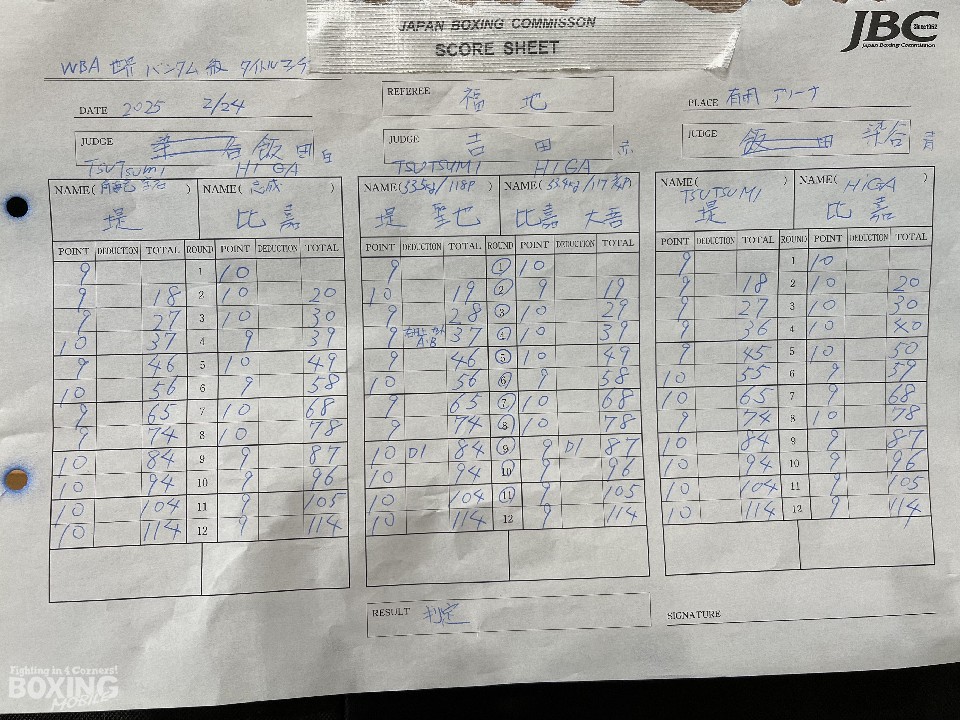 JAPAN BOXING COMMISSON
SCORE SHEET
JBC Since1952
Japan Boxing Commission
WBA 世界 バンタム級 タイトルマッチ
DATE 2025 2/24
REFEREE 福地
PLACE 有明 アリーナ
JUDGE 飯田 白
JUDGE 吉田 赤
JUDGE 染谷 青
TSUTSUMI HIGA
NAME( ) NAME( )
堤 比嘉
TSUTSUMI HIGA
NAME(53.5kg/118P) NAME( )
堤 聖也 比嘉 大吾
NAME( TSUTSUMI ) NAME( HIGA )
堤 比嘉
POINT DEDUCTION TOTAL ROUND POINT DEDUCTION TOTAL
9 1 10
9 18 2 10 20
9 27 3 10 30
10 37 4 9 39
9 46 5 10 49
10 56 6 9 58
9 65 7 10 68
9 74 8 10 78
10 84 9 9 87
10 94 10 9 96
10 104 11 9 105
10 114 12 9 114
POINT DEDUCTION TOTAL ROUND POINT DEDUCTION TOTAL
9 1 10
10 19 2 9 19
9 28 3 10 29
9 37 4 10 39
9 46 5 10 49
10 56 6 9 58
9 65 7 10 68
9 74 8 10 78
10 D1 84 9 9 D1 87
10 94 10 9 96
10 104 11 9 105
10 114 12 9 114
POINT DEDUCTION TOTAL ROUND POINT DEDUCTION TOTAL
9 1 10
9 18 2 10 20
9 27 3 10 30
9 36 4 10 40
9 45 5 10 50
10 55 6 9 59
10 65 7 9 68
9 74 8 10 78
10 84 9 9 87
10 94 10 9 96
10 104 11 9 105
10 114 12 9 114
RESULT 判定
SIGNATURE
Fighting in 4 Corners!
BOXING
MOBILE